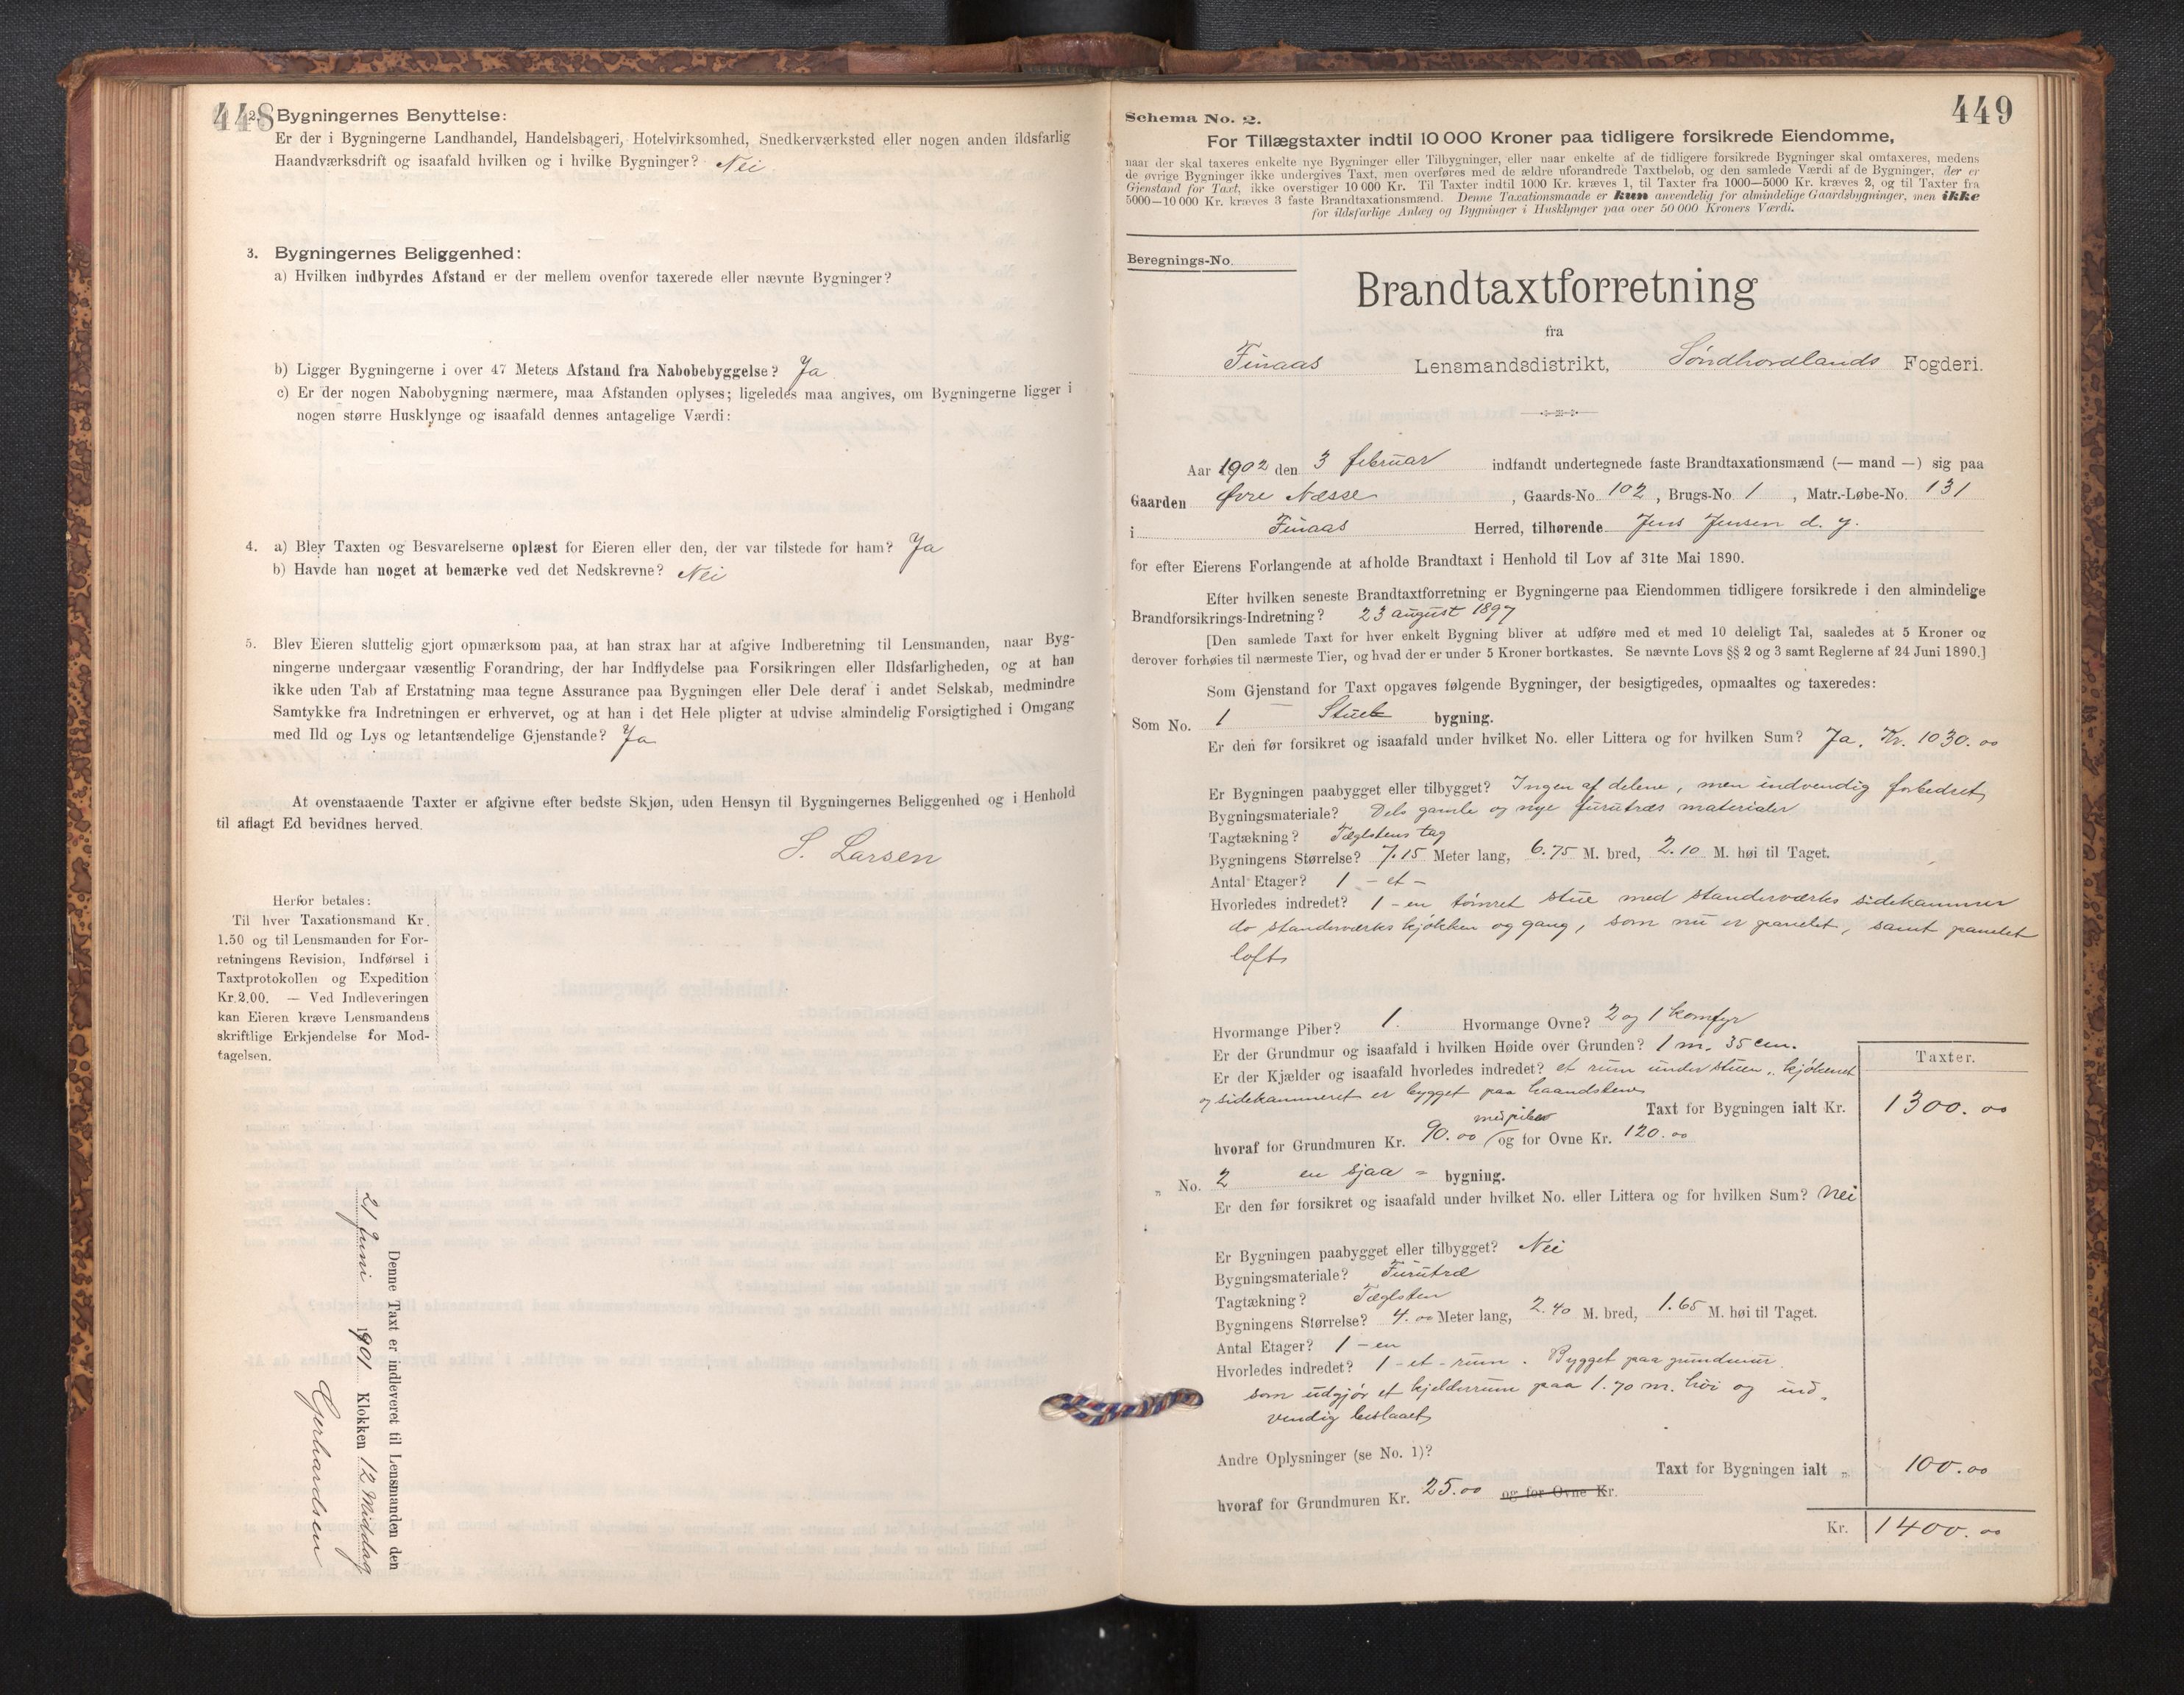 448
2. Bygningernes Benyttelse:
Er der i Bygningerne Landhandel, Handelsbageri, Hotelvirksomhed, Snedkerværksted eller nogen anden ildsfarlig
Haandværksdrift og isaafald hvilken og i hvilke Bygninger? Nei
3. Bygningernes Beliggenhed:
a) Hvilken indbyrdes Afstand er der mellem ovenfor taxerede eller nævnte Bygninger?
b) Ligger Bygningerne i over 47 Meters Afstand fra Nabobebyggelse? Ja
c) Er der nogen Nabobygning nærmere, maa Afstanden oplyses; ligeledes maa angives, om Bygningerne ligger i
nogen større Husklynge og isaafald dennes antagelige Værdi:
4. a) Blev Taxten og Besvarelserne oplæst for Eieren eller den, der var tilstede for ham? Ja
b) Havde han noget at bemærke ved det Nedskrevne? Nei
5. Blev Eieren sluttelig gjort opmærksom paa, at han strax har at afgive Indberetning til Lensmanden, naar Byg-
ningerne undergaar væsentlig Forandring, der har Indflydelse paa Forsikringen eller Ildsfarligheden, og at han
ikke uden Tab af Erstatning maa tegne Assurance paa Bygningen eller Dele deraf i andet Selskab, medmindre
Samtykke fra Indretningen er erhvervet, og at han i det Hele pligter at udvise almindelig Forsigtighed i Omgang
med Ild og Lys og letantændelige Gjenstande? Ja
At ovenstaaende Taxter er afgivne efter bedste Skjøn, uden Hensyn til Bygningernes Beliggenhed og i Henhold
til aflagt Ed bevidnes herved.
S. Larsen
Herfor betales:
Til hver Taxationsmand Kr.
1.50 og til Lensmanden for For-
retningens Revision, Indførsel i
Taxtprotokollen og Expedition
Kr. 2.00. — Ved Indleveringen
kan Eieren kræve Lensmandens
skriftlige Erkjendelse for Mod-
tagelsen.
Denne Taxt er indleveret til Lensmanden den
21 Juni 1901 Klokken 12 Middag
Gerhardsen
449
Schema No. 2.
For Tillægstaxter indtil 10 000 Kroner paa tidligere forsikrede Eiendomme,
naar der skal taxeres enkelte nye Bygninger eller Tilbygninger, eller naar enkelte af de tidligere forsikrede Bygninger skal omtaxeres, medens
de øvrige Bygninger ikke undergives Taxt, men overføres med de ældre uforandrede Taxtbeløb, og den samlede Værdi af de Bygninger, der er
Gjenstand for Taxt, ikke overstiger 10 000 Kr. Til Taxter indtil 1000 Kr. kræves 1, til Taxter fra 1000—5000 Kr. kræves 2, og til Taxter fra
5000—10 000 Kr. kræves 3 faste Brandtaxationsmænd. Denne Taxationsmaade er kun anvendelig for almindelige Gaardsbygninger, men ikke
for ildsfarlige Anlæg og Bygninger i Husklynger paa over 50 000 Kroners Værdi.
Beregnings-No.
Brandtaxtforretning
fra
Finaas Lensmandsdistrikt, Søndhordlands Fogderi.
Aar 1902 den 3 februar indfandt undertegnede faste Brandtaxationsmænd (— mand —) sig paa
Gaarden Øvre Næsse, Gaards-No. 102, Brugs-No. 1, Matr.-Løbe-No. 131
i Finaas Herred, tilhørende Jens Jensen d. y.
for efter Eierens Forlangende at afholde Brandtaxt i Henhold til Lov af 31te Mai 1890.
Efter hvilken seneste Brandtaxtforretning er Bygningerne paa Eiendommen tidligere forsikrede i den almindelige
Brandforsikrings-Indretning? 23 august 1897
[Den samlede Taxt for hver enkelt Bygning bliver at udføre med et med 10 deleligt Tal, saaledes at 5 Kroner og
derover forhøies til nærmeste Tier, og hvad der er under 5 Kroner bortkastes. Se nævnte Lovs §§ 2 og 3 samt Reglerne af 24 Juni 1890.]
Som Gjenstand for Taxt opgaves følgende Bygninger, der besigtigedes, opmaaltes og taxeredes:
Som No. 1 Stue bygning.
Er den før forsikret og isaafald under hvilket No. eller Littera og for hvilken Sum? Ja. Kr. 1030.00
Er Bygningen paabygget eller tilbygget? Ingen af delene, men indvendig forbedret
Bygningsmateriale? Dels gamle og nye furutræs materialer
Tagtækning? Tæglstens tag
Bygningens Størrelse? 7.15 Meter lang, 6.75 M. bred, 2.10 M. høi til Taget.
Antal Etager? 1 - et -
Hvorledes indredet? 1 - en tømret stue med standerværks sidekammer
do standerværks kjøkken og gang, som nu er panelet, samt panelet
loft
Hvormange Piber? 1. Hvormange Ovne? 2 og 1 komfyr
Er der Grundmur og isaafald i hvilken Høide over Grunden? 1 m. 35 cm.
Er der Kjælder og isaafald hvorledes indredet? et rum under stuen, kjøkenet
og sidekammeret er bygget paa haandsten
Taxter.
Taxt for Bygningen ialt Kr. 1300.00
hvoraf for Grundmuren Kr. 90.00 med piber og for Ovne Kr. 120.00
" No. 2 en sjaa - bygning.
Er den før forsikret og isaafald under hvilket No. eller Littera og for hvilken Sum? Nei
Er Bygningen paabygget eller tilbygget? Nei
Bygningsmateriale? Furutræ
Tagtækning? Tæglsten
Bygningens Størrelse? 4.00 Meter lang, 2.40 M. bred, 1.65 M. høi til Taget.
Antal Etager? 1 - en
Hvorledes indredet? 1 - et - rum. Bygget paa grundmur
som udgjør et kjelderrum paa 1.70 m. høi og ind-
vendig beslaaet
Andre Oplysninger (se No. 1)?
Taxt for Bygningen ialt " 100.00
hvoraf for Grundmuren Kr. 25.00 og for Ovne Kr.
Kr. 1400.00